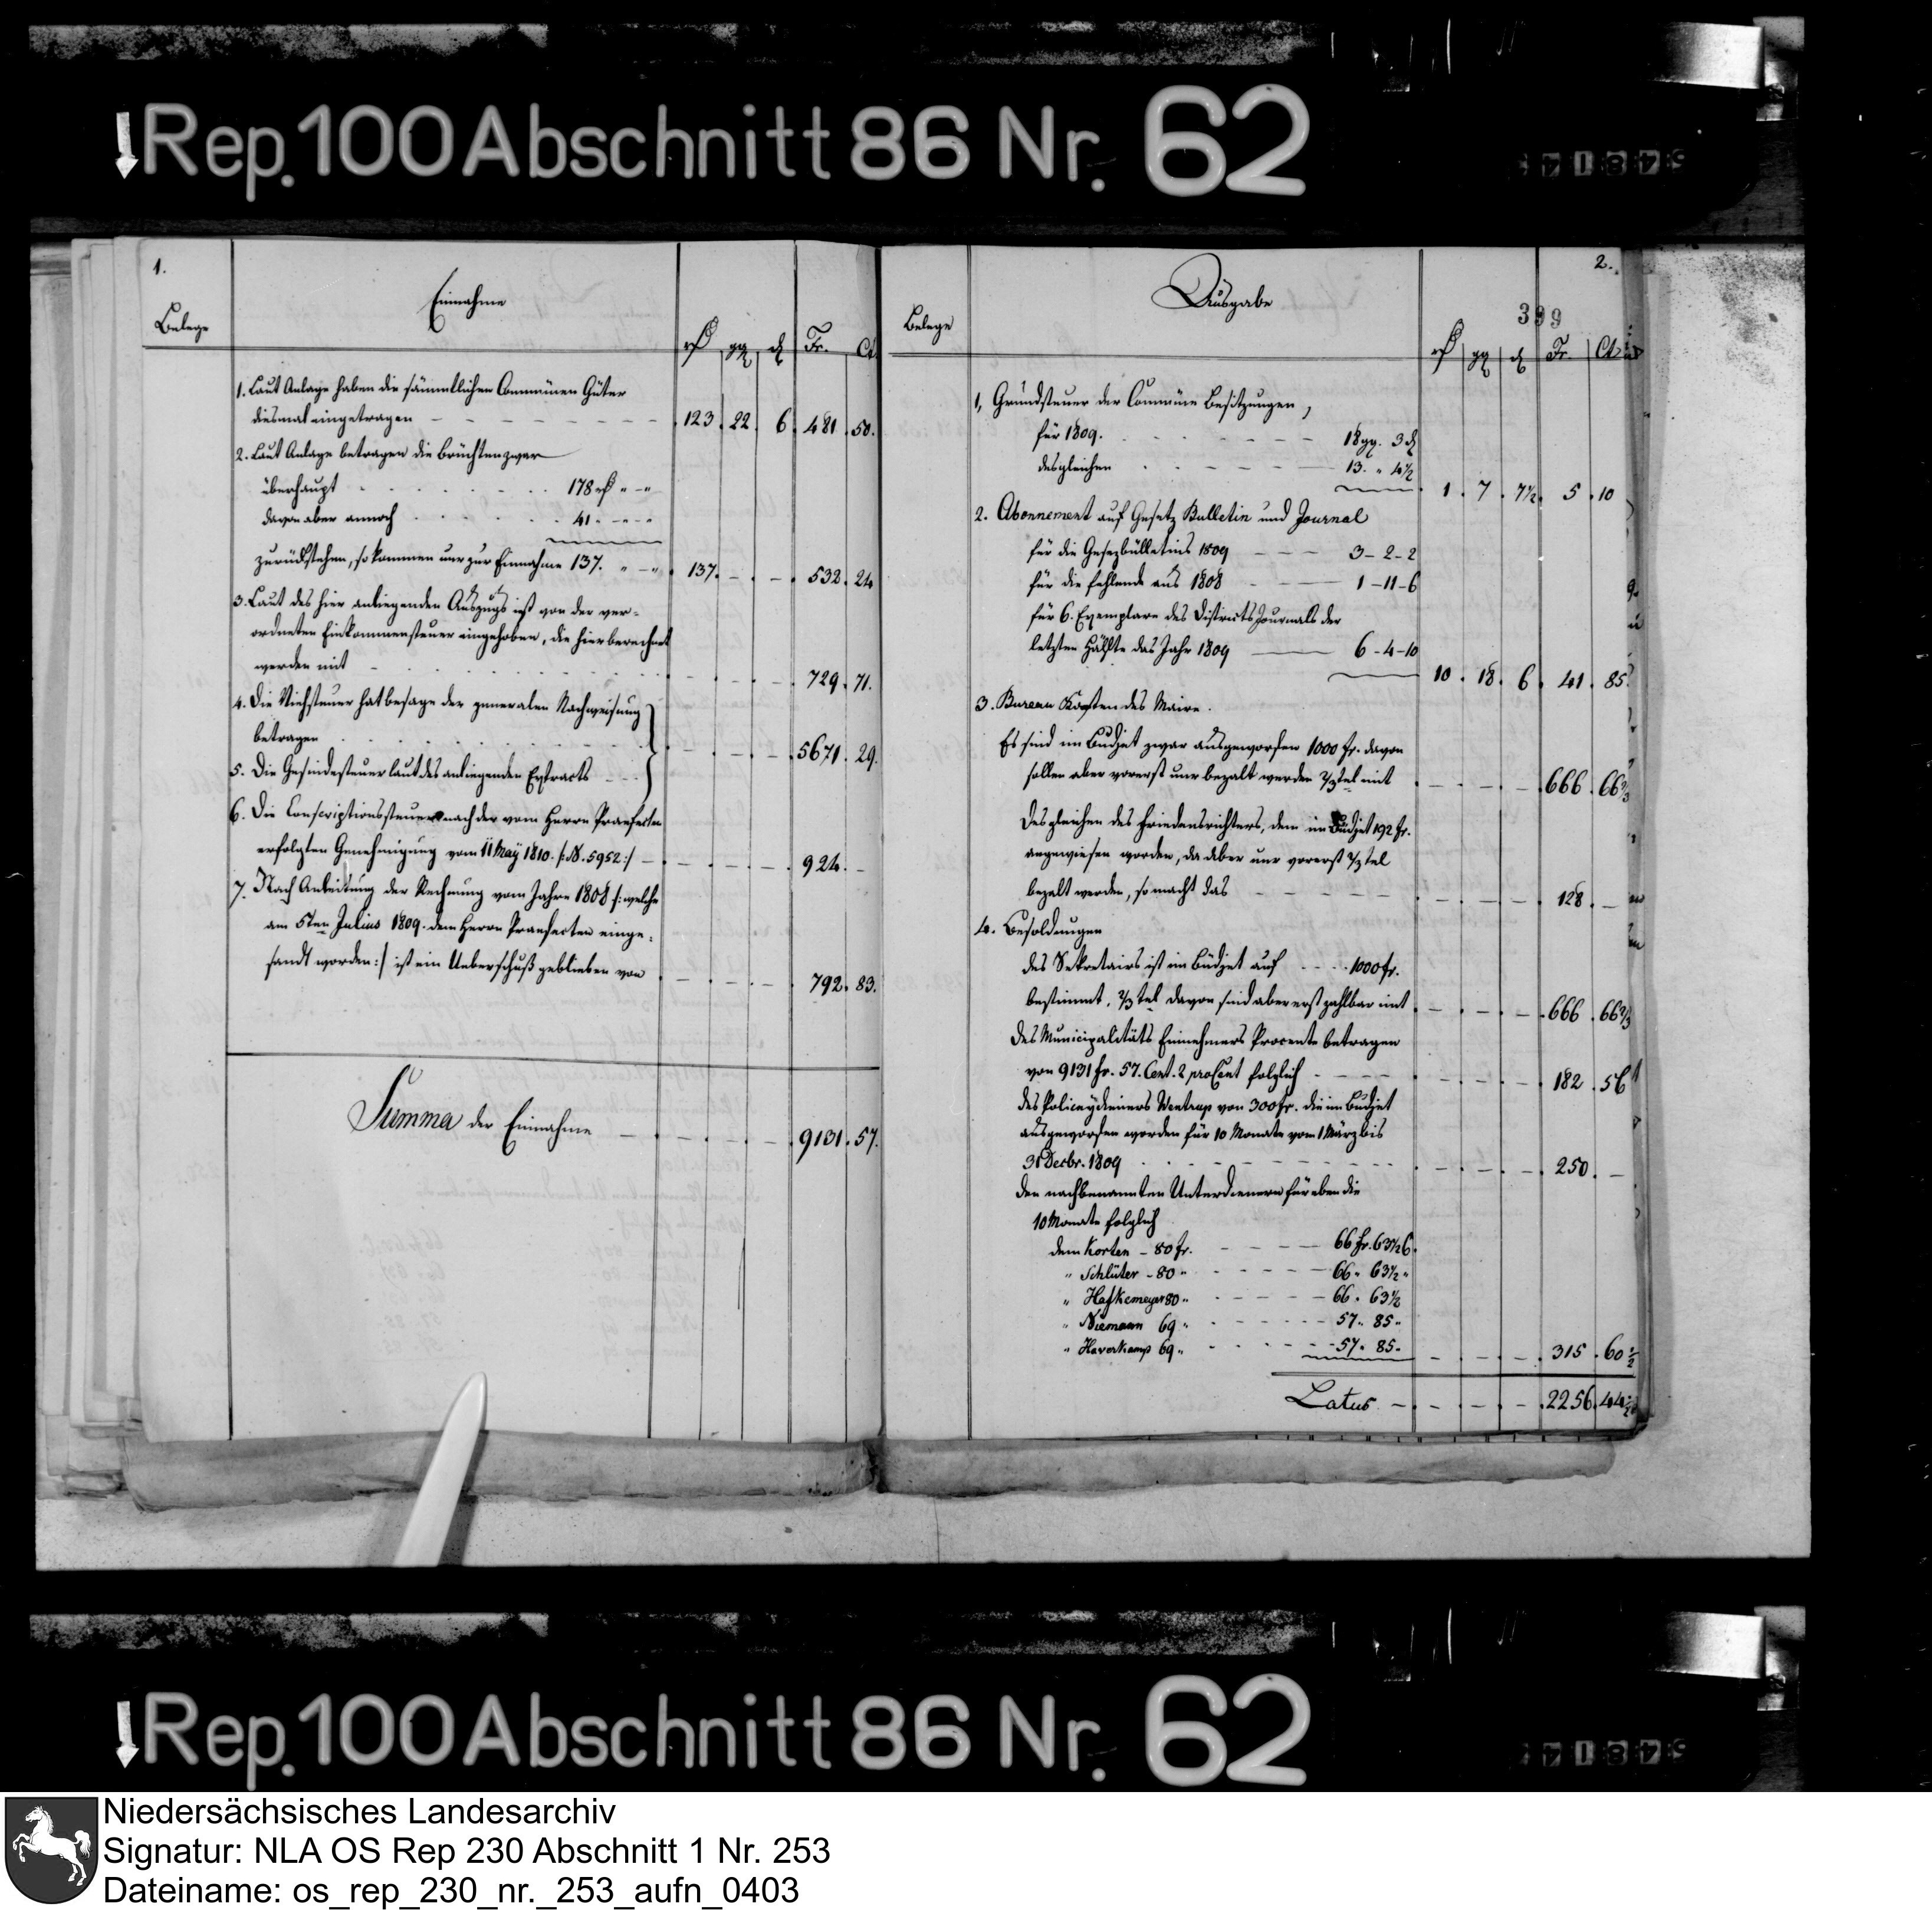 Rep. 100 Abschnitt 86 Nr. 62
1.
Belege
Einnahme
rℓ gg ₰ Fr. Ct.
1. Laut Anlage haben die sämmtlichen Communen Güter
diesmal eingetragen – – – 123. 22. 6. 481. 50.
2. Laut Anlage betragen die Brüchten zwar
überhaupt . . . 178 rℓ „ – „
davon aber annoch . . . 41. – „ – „
zurückstehen, so kommen nur zur Einnahme 137. „ – „ 137. – . – . 532. 24
3. Laut des hier anliegenden Auszugs ist von der ver-
ordneten Einkommensteuer eingehoben, die hier berechnet
werden mit – – – 729. 71.
4. Die Viehsteuer hat besage der generalen Nachweisung
betragen
5. Die Gesindesteuer laut des anliegenden Extracts – – } 5671. 29.
6. Die Conscriptionssteuer nach der vom Herrn Praefecten
erfolgten Genehmigung vom 11 May 1810. /: N. 5952 :/ – 924. –
7. Nach Anleitung der Rechnung vom Jahre 1808 /: welche
am 5ten Julius 1809. dem Herrn Praefecten einge-
sandt worden :/ ist ein Ueberschuß geblieben von – 792. 83.
Summa der Einnahme – 9131. 57.
2.
399
Belege
Ausgabe
rℓ gg ₰ Fr. Ct.
1, Grundsteuer der Commüne Besitzungen,
für 1809. – – – 18 gg. 3 ₰
desgleichen – – – 13. „ 4½
1. 7. 7½. 5. 10
2. Abonnement auf Gesetz Bulletin und Journal
für die Gesezbülletins 1809 – – – 3 – 2 – 2
für die fehlende aus 1808 – – – 1 – 11 – 6
für 6. Exemplare des Districts Journals der
letzten Hälfte das Jahr 1809 – – 6 – 4 – 10
10. 18. 6. 41. 85.
3. Bureau Kosten des Maire.
Es sind im Budjet zwar ausgeworfen 1000 fr. davon
sollen aber vorerst nur bezalt werden ⅔tel mit – 666. 66⅔
Desgleichen des Friedensrichters, dem im Budjet 192 fr.
angewiesen worden, da aber nur vorerst ⅔tel
bezalt werden, so macht das – – – 128. –
4. Besoldungen
des Sekretairs ist im Büdjet auf – – 1000 fr.
bestimmt, ⅔tel davon sind aber erst zahlbar mit – 666. 66⅔
des Municipalitäts Einnehmers Procente betragen
von 9131 fr. 57. Cent. 2 proCent folglich – – 182. 56
des Policeydieners Wentrup von 300 fr. die im Budjet
ausgeworfen worden für 10 Monate vom 1 März bis
31 Decbr. 1809 – – – 250. –
den nachbenannten Unterdienern für eben die
10 Monate folglich
dem Korten – 80 fr. – – – 66 fr. 63½ C.
„ Schlüter – 80 „ – – – 66 „ 63½ „
„ Hafkemeyer 80 „ – – – 66. 63½
„ Niemann 69 „ – – – 57. 85 „
„ Haverkamp 69 „ – – – 57. 85 –
315. 60½
Latus – 2256. 44½
Rep. 100 Abschnitt 86 Nr. 62
Niedersächsisches Landesarchiv
Signatur: NLA OS Rep 230 Abschnitt 1 Nr. 253
Dateiname: os_rep_230_nr._253_aufn_0403